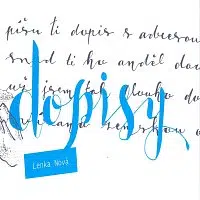 píšu ti dopis s adresou
snad ti ho anděl da
už jsem tak dlouho do
dopisy
Lenka Nová